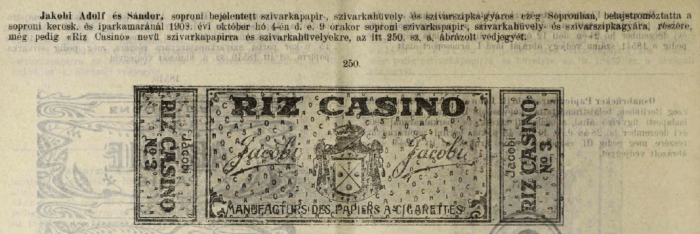 Jakobi Adolf és Sándor, soproni bejelentett szivarkapapir-, szivarkahüvely- és szivarszipka-gyáros czég Sopronban, belajstromoztatta a
soproni keresk. és iparkamaránál 1908. évi október hó 4-én d. e. 9 órakor soproni szivarkapapir-, szivarkahüvely- és szivarszipkagyára, részére,
még pedig «Riz Casino» nevű szivarkapapirra és szivarkahüvelyekre, az itt 250. sz. a. ábrázolt védjegyét.
250.
Jacobi
RIZ CASINO
No 3.
RIZ CASINO
Jacobi Jacobi
MANUFACTURS DES PAPIERS A CIGARETTES
Jacobi
RIZ CASINO
No 3.